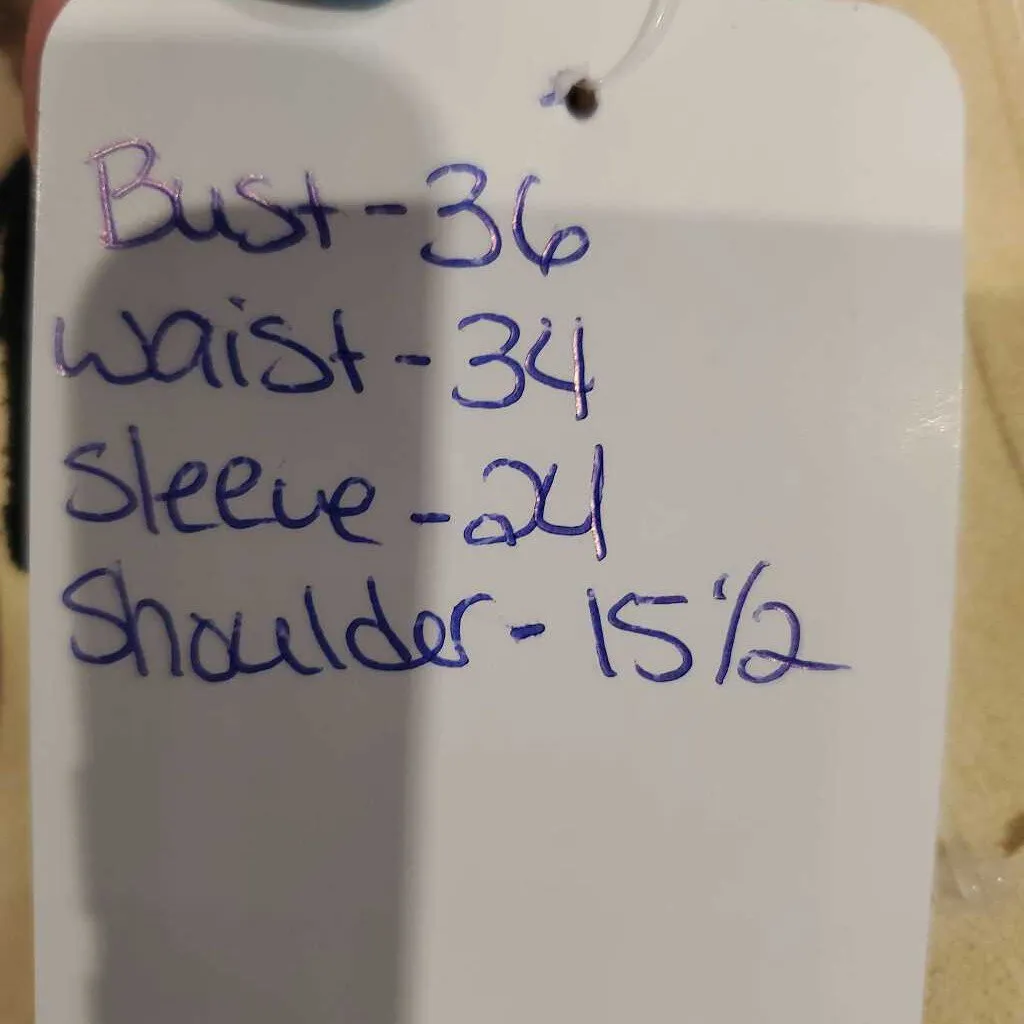 Bust - 36
Waist - 34
Sleeve - 24
Shoulder - 15 1/2